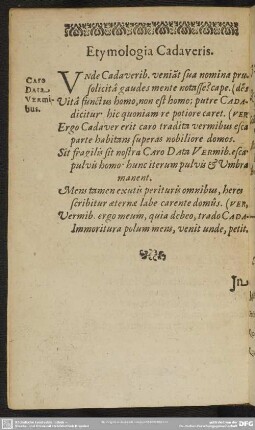 Etymologia Cadaveris.
Caro
Data
Vermi-
bus.
VNde Cadaverib. veniãt sua nomina pru-
solicitâ gaudes mente notasse? cape. (dẽs
Vitâ functus homo, non est homo: putre CADA-
dicitur hic quoniam re potiore caret. (VER
Ergo Cadaver erit caro tradita vermibus esca
parte habitans superas nobiliore domos.
Sit fragilis sit nostra Caro DATA VERMIb. esca
pulvis homo hunc iterum pulvis & Umbra
manent.
Mens tamen exutis perituris omnibus, heres
scribitur æternæ labe carente domûs. (VER,
Vermib. ergo meum, quia debeo, trado CADA-
Immoritura polum mens, venit unde, petit.
Jn